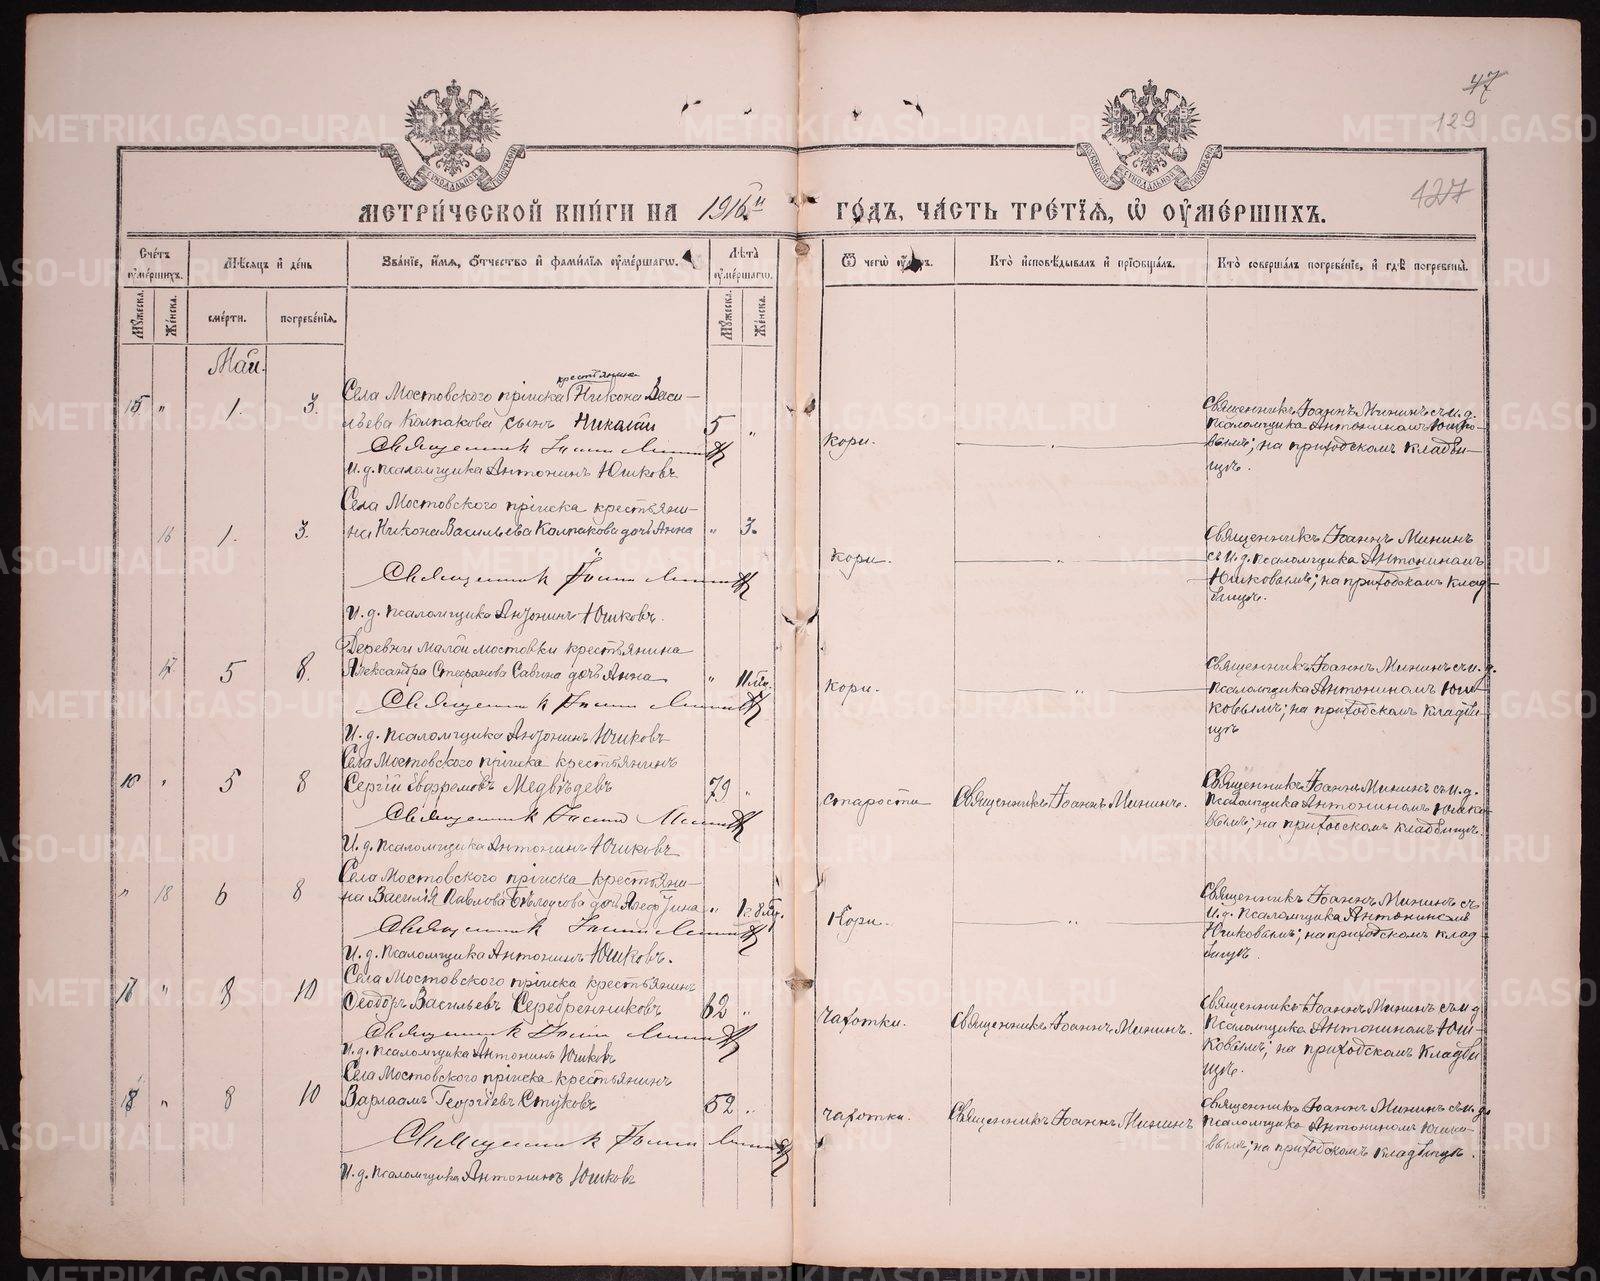 47
129
127
МЕТРИ́ЧЕСКОЙ КНИ́ГИ НА 1916й ГО́ДЪ, ЧА́СТЬ ТРЕ́ТІѦ, Ѽ ОУ҆МЕ́РШИХЪ.
Сче́тъ оу҆ме́ршихъ.
Мѣ́сѧцъ и҆ де́нь
Зва́ніе, и҆́мѧ, ѻ҆́тчество и҆ фами́лїѧ оу҆ме́ршагѡ.
Лѣ́та оу҆ме́ршагѡ.
Ѿ чегѡ̀
Кто̀ и҆сповѣ́дывалъ и҆ прїѻбща́лъ.
Кто̀ соверша́лъ погребе́ніе, и҆ гдѣ̀ погребены̀.
Мꙋ́жеска.
Же́нска.
сме́рти.
погребе́нїѧ.
Мꙋ́жеска.
Же́нска.
Май.
15 " 1. 3.
Села Мостовского пріиска крестьянина Никона Васи-
льева Колпакова сынъ Николай 5 "
Священник Іоанн Минин
И. д. псаломщика Антонинъ Юшковъ
кори.
Священникъ Іоаннъ Мининъ съ и. д.
псаломщика Антониномъ Юшко-
вымъ; на приходскомъ кладби-
щѣ.
16 1. 3.
Села Мостовского пріиска крестьяни-
на Никона Васильева Колпакова дочь Анна " 3.
Священник Іоанн Минин
И. д. псаломщика Антонинъ Юшковъ.
кори. "
Священникъ Іоаннъ Мининъ
съ и. д. псаломщика Антониномъ
Юшковымъ; на приходскомъ клад-
бищѣ.
17 5 8.
Деревни Малой Мостовки крестьянина
Александра Стефанова Савина дочь Анна " 11 мц.
Священник Іоанн Минин
И. д. псаломщика Антонинъ Юшковъ
кори. "
Священникъ Іоаннъ Мининъ съ и. д.
псаломщика Антониномъ Юш-
ковымъ; на приходскомъ кладби-
щѣ
16 " 5 8
Села Мостовского пріиска крестьянинъ
Сергій Евфремовъ Медвѣдевъ 79 "
Священник Іоанн Минин
И. д. псаломщика Антонинъ Юшковъ
старости
Священникъ Іоаннъ Мининъ.
Священникъ Іоаннъ Мининъ съ и. д.
псаломщика Антониномъ Юшко-
вымъ; на приходскомъ кладбищѣ.
" 18 6 8
Села Мостовского пріиска крестьяни-
на Василія Павлова Бѣлоусова дочь Алефтина " 1 г. 8 мц.
Священник Іоанн Минин
И. д. псаломщика Антонинъ Юшковъ.
Кори. "
Священникъ Іоаннъ Мининъ съ
и. д. псаломщика Антониномъ
Юшковымъ; на приходскомъ клад-
бищѣ.
17 " 8 10
Села Мостовского пріиска крестьянинъ
Ѳеодоръ Васильевъ Серебренниковъ 62 "
Священник Іоанн Минин
И. д. псаломщика Антонинъ Юшковъ
чахотки.
Священникъ Іоаннъ Мининъ.
Священникъ Іоаннъ Мининъ съ и. д.
псаломщика Антониномъ Юш-
ковымъ; на приходскомъ кладби-
щѣ.
18 " 8 10
Села Мостовского пріиска крестьянинъ
Варлаамъ Георгіевъ Стуковъ 52 "
Священник Іоанн Минин
И. д. псаломщика Антонинъ Юшковъ
чахотки.
Священникъ Іоаннъ Мининъ
Священникъ Іоаннъ Мининъ съ и. д.
псаломщика Антониномъ Юшко-
вымъ; на приходскомъ кладбищѣ.
METRIKI.GASO-URAL.RU